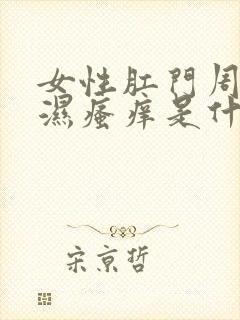 女性肛門周
濕瘙痒是什
宋京哲